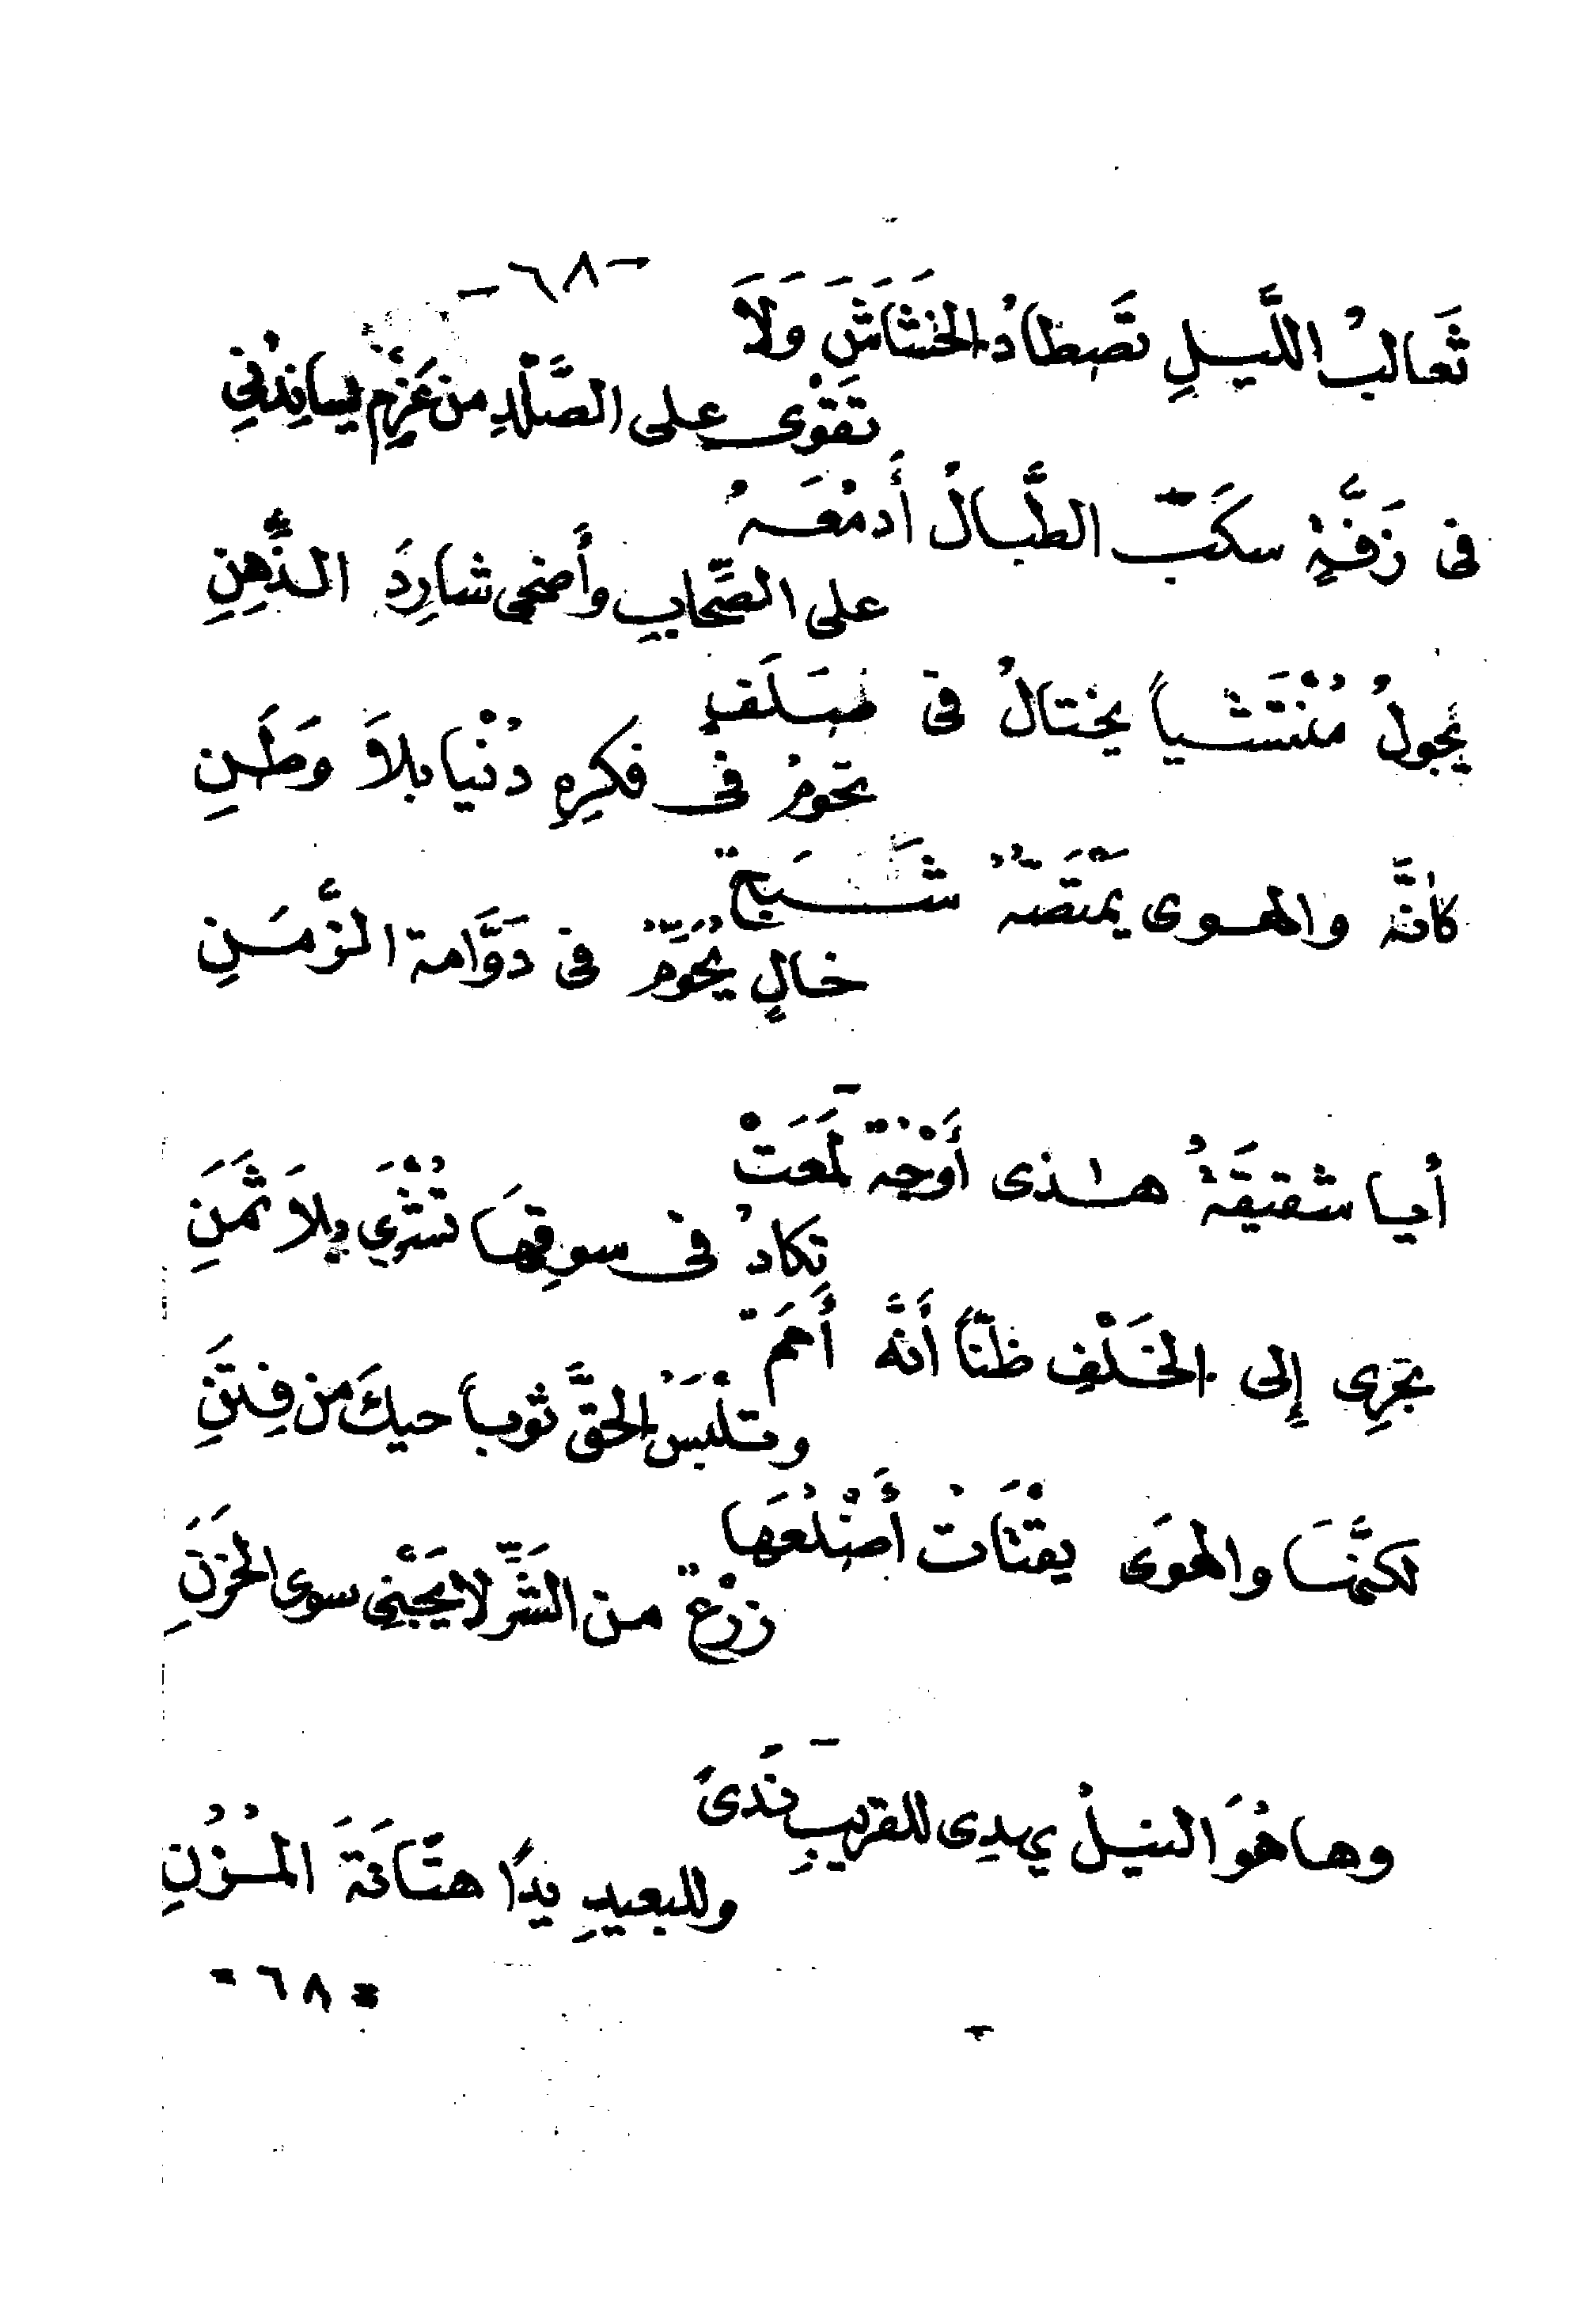 -٦٨-
ثَعالبُ اللَّيلِ تصَّطادُ الخَشَاشَ وَلاَ
تقَوْى على الصَّلْدِ من عَزْمٍ يساندُنِي
فى زَفَّةٍ سكَبَ الطَّبالُ أَدمُعَهُ
على الصِّحابِ وأَضحى شارِدَ الذِّهِنِ
يجولُ مُنْتَشياً يختالُ فى صَلَفٍ
تحومُ فى فكرِهِ دُنْيا بلاَ وَطَنِ
كأنَّه والهوى يَمْتَصُّهُ شَبَحٌ
خالٍ يُحَوِّمُ فى دَوَّامة الزَّمَنِ
أيا شقيقَةُ هٰذى أَوْجُهٌ لَمَعَتْ
تكادُ فى سوقِهَا تُشْرَي بِلاَ ثَمَنِ
تجرِى إلى الخَلْفِ ظنّاً أَنَّه أَمَمٌ
وتلْبَسُ الحقَّ ثوباً حيكَ من فِتَنِ
لكنَّها والهوَى يقْتَاتُ أَضْلُعَهَا
زرْعٌ من الشَّرِّ لا يَجْنِى سوى الحَزَنِ
وها هُوَ النيلُ يهدِى للقريبِ نَدىً
وللبعيدِ يدًا هتَّانَةَ المُزُنِ
= ٦٨ =